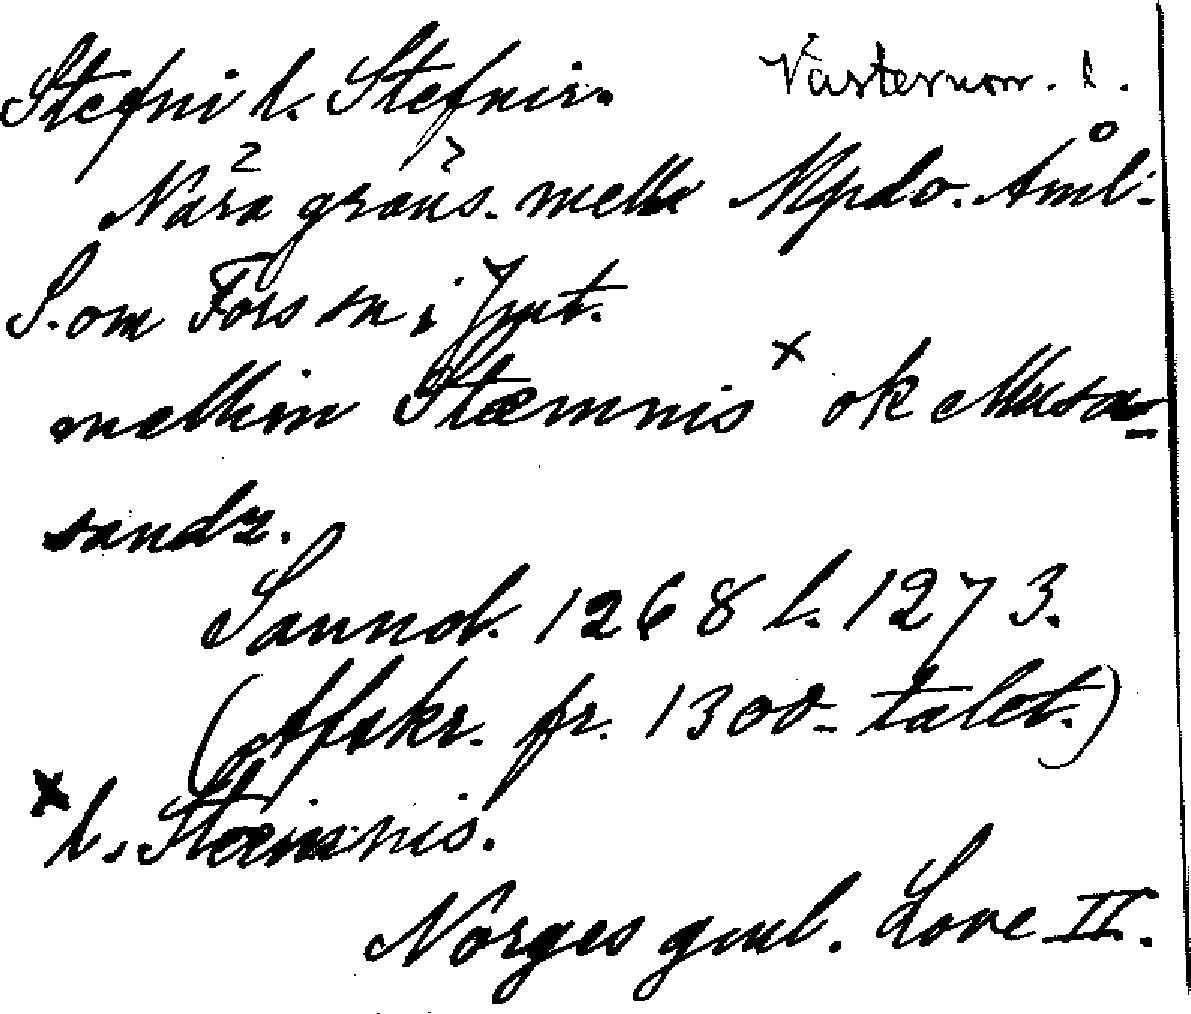 Stefni l. Stefnir. Västernorr. l.
Nära gräns. mella Mpdo. Åml.
S. om Fors sn i Jmt.
mellim Stæmnis x ok Musa-
sandz.
Sannol. 1268 l. 1273.
(Afskr. fr. 1300-talet.)
x l. Stæinsnis.
Norges gml. Love II.